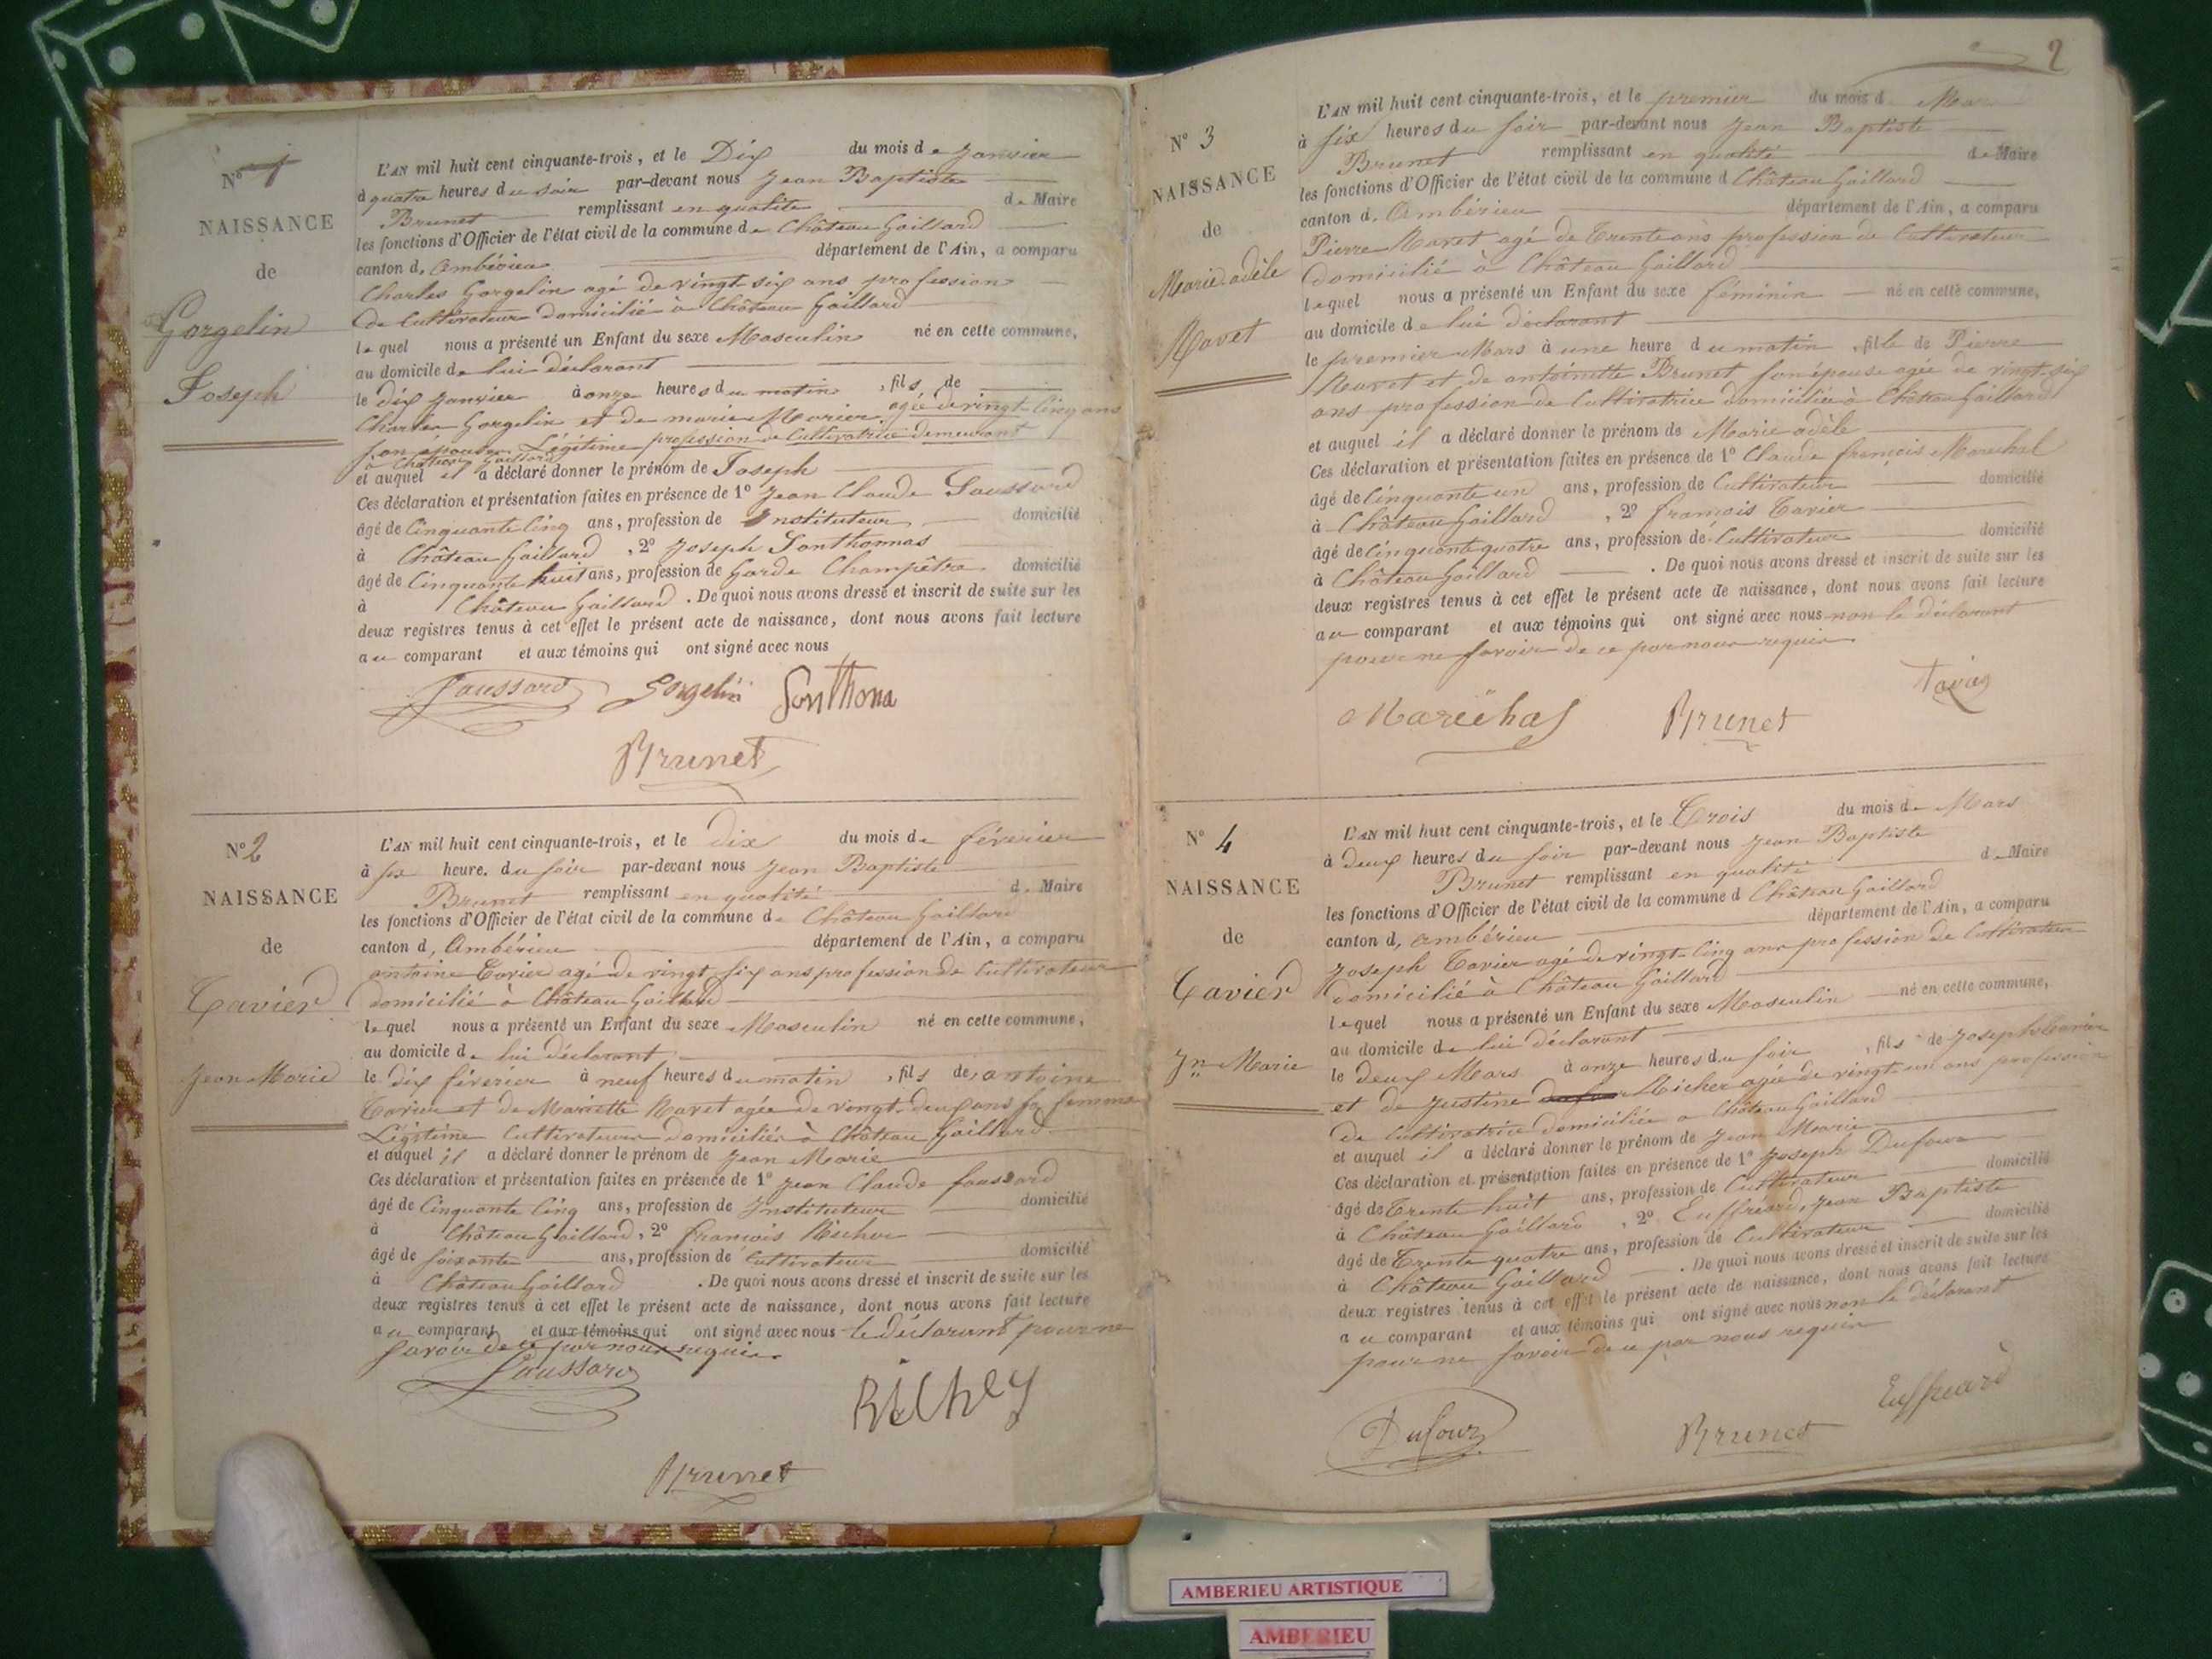 N° 1
NAISSANCE
de
Gorgelin
Joseph
L'AN mil huit cent cinquante-trois, et le Dix du mois de Janvier
à quatre heures du soir par-devant nous Jean Baptiste
Brunet remplissant en qualité de Maire
les fonctions d'Officier de l'état civil de la commune de Château Gaillard
canton d, Ambérieu département de l'Ain, a comparu
Charles Gorgelin agé de vingt six ans profession
de Cultivateur domicilié à Château Gaillard
lequel nous a présenté un Enfant du sexe Masculin né en cette commune,
au domicile de lui déclarant
le dix Janvier à onze heures du matin, fils de
Charles Gorgelin et de marie Morier agée de vingt-cinq ans
son épouse Légitime profession de Cultivatrice demeurant
à Château Gaillard
et auquel il a déclaré donner le prénom de Joseph
Ces déclaration et présentation faites en présence de 1° Jean Claude Faussard
âgé de Cinquante Cinq ans, profession de Instituteur domicilié
à Château Gaillard, 2° Joseph Sonthonnas
âgé de Cinquante huit ans, profession de Garde Champêtre domicilié
à Château Gaillard. De quoi nous avons dressé et inscrit de suite sur les
deux registres tenus à cet effet le présent acte de naissance, dont nous avons fait lecture
au comparant et aux témoins qui ont signé avec nous
Faussard Gorgelin Sonthona
Brunet
N° 2
NAISSANCE
de
Tavier
Jean Marie
L'AN mil huit cent cinquante-trois, et le dix du mois de février
à six heure. du soir par-devant nous Jean Baptiste
Brunet remplissant en qualité d. Maire
les fonctions d'Officier de l'état civil de la commune de Château Gaillard
canton d, Ambérieu département de l'Ain, a comparu
antoine Tavier agé de vingt six ans profession de Cultivateur
domicilié à Château Gaillard
lequel nous a présenté un Enfant du sexe Masculin né en cette commune,
au domicile de lui déclarant
le dix février à neuf heures du matin, fils de antoine
Tavier et de Mariette Ravet agée de vingt-deux ans sa femme
Légitime Cultivateurs domiciliés à Château Gaillard
et auquel il a déclaré donner le prénom de Jean Marie
Ces déclaration et présentation faites en présence de 1° Jean Claude faussard
âgé de Cinquante Cinq ans, profession de Instituteur domicilié
à Château Gaillard, 2° François Richer
âgé de soixante ans, profession de Cultivateur domicilié
à Château Gaillard. De quoi nous avons dressé et inscrit de suite sur les
deux registres tenus à cet effet le présent acte de naissance, dont nous avons fait lecture
au comparant et aux témoins qui ont signé avec nous le déclarant pour ne
savoir de ce par nous requis
Faussard
Brunet
2
N° 3
NAISSANCE
de
Marie adèle
Ravet
L'AN mil huit cent cinquante-trois, et le premier du mois d Mars
à six heures du soir par-devant nous Jean Baptiste
Brunet remplissant en qualité de Maire
les fonctions d'Officier de l'état civil de la commune d Château Gaillard
canton d, Ambérieu département de l'Ain, a comparu
Pierre Ravet agé de Trente ans profession de Cultivateur
domicilié à Château Gaillard
lequel nous a présenté un Enfant du sexe féminin né en cette commune,
au domicile de lui déclarant
le premier Mars à une heure du matin, fille de Pierre
Ravet et de antoinette Brunet son épouse agée de vingt-six
ans profession de Cultivatrice domiciliée à Château Gaillard
et auquel il a déclaré donner le prénom de Marie adèle
Ces déclaration et présentation faites en présence de 1° Claude françois Marechal
âgé de Cinquante un ans, profession de Cultivateur domicilié
à Château Gaillard, 2° françois Tavier
âgé de Cinquante quatre ans, profession de Cultivateur domicilié
à Château Gaillard. De quoi nous avons dressé et inscrit de suite sur les
deux registres tenus à cet effet le présent acte de naissance, dont nous avons fait lecture
au comparant et aux témoins qui ont signé avec nous non le déclarant
pour ne savoir de ce par nous requis
Maréchal Brunet Tavier
N° 4
NAISSANCE
de
Tavier
Jn Marie
L'AN mil huit cent cinquante-trois, et le Trois du mois de Mars
à deux heures du soir par-devant nous Jean Baptiste
Brunet remplissant en qualité de Maire
les fonctions d'Officier de l'état civil de la commune d Château Gaillard
canton d, ambérieu département de l'Ain, a comparu
Joseph Tavier agé de vingt-cinq ans profession de Cultivateur
domicilié à Château Gaillard
lequel nous a présenté un Enfant du sexe Masculin né en cette commune,
au domicile de lui déclarant
le deux Mars à onze heures du soir, fils de Joseph Tavier
et de Justine Richer agée de vingt un ans profession
de Cultivatrice domiciliée à Château Gaillard
et auquel il a déclaré donner le prénom de Jean Marie
Ces déclaration et présentation faites en présence de 1° Joseph Dufour
âgé de Trente huit ans, profession de Cultivateur domicilié
à Château Gaillard, 2° Euffréard, Jean Baptiste
âgé de Trente quatre ans, profession de Cultivateur domicilié
à Château Gaillard. De quoi nous avons dressé et inscrit de suite sur les
deux registres tenus à cet effet le présent acte de naissance, dont nous avons fait lecture
au comparant et aux témoins qui ont signé avec nous non le déclarant
pour ne savoir de ce par nous requis
Dufour Brunet Euffréard
AMBERIEU ARTISTIQUE
AMBERIEU